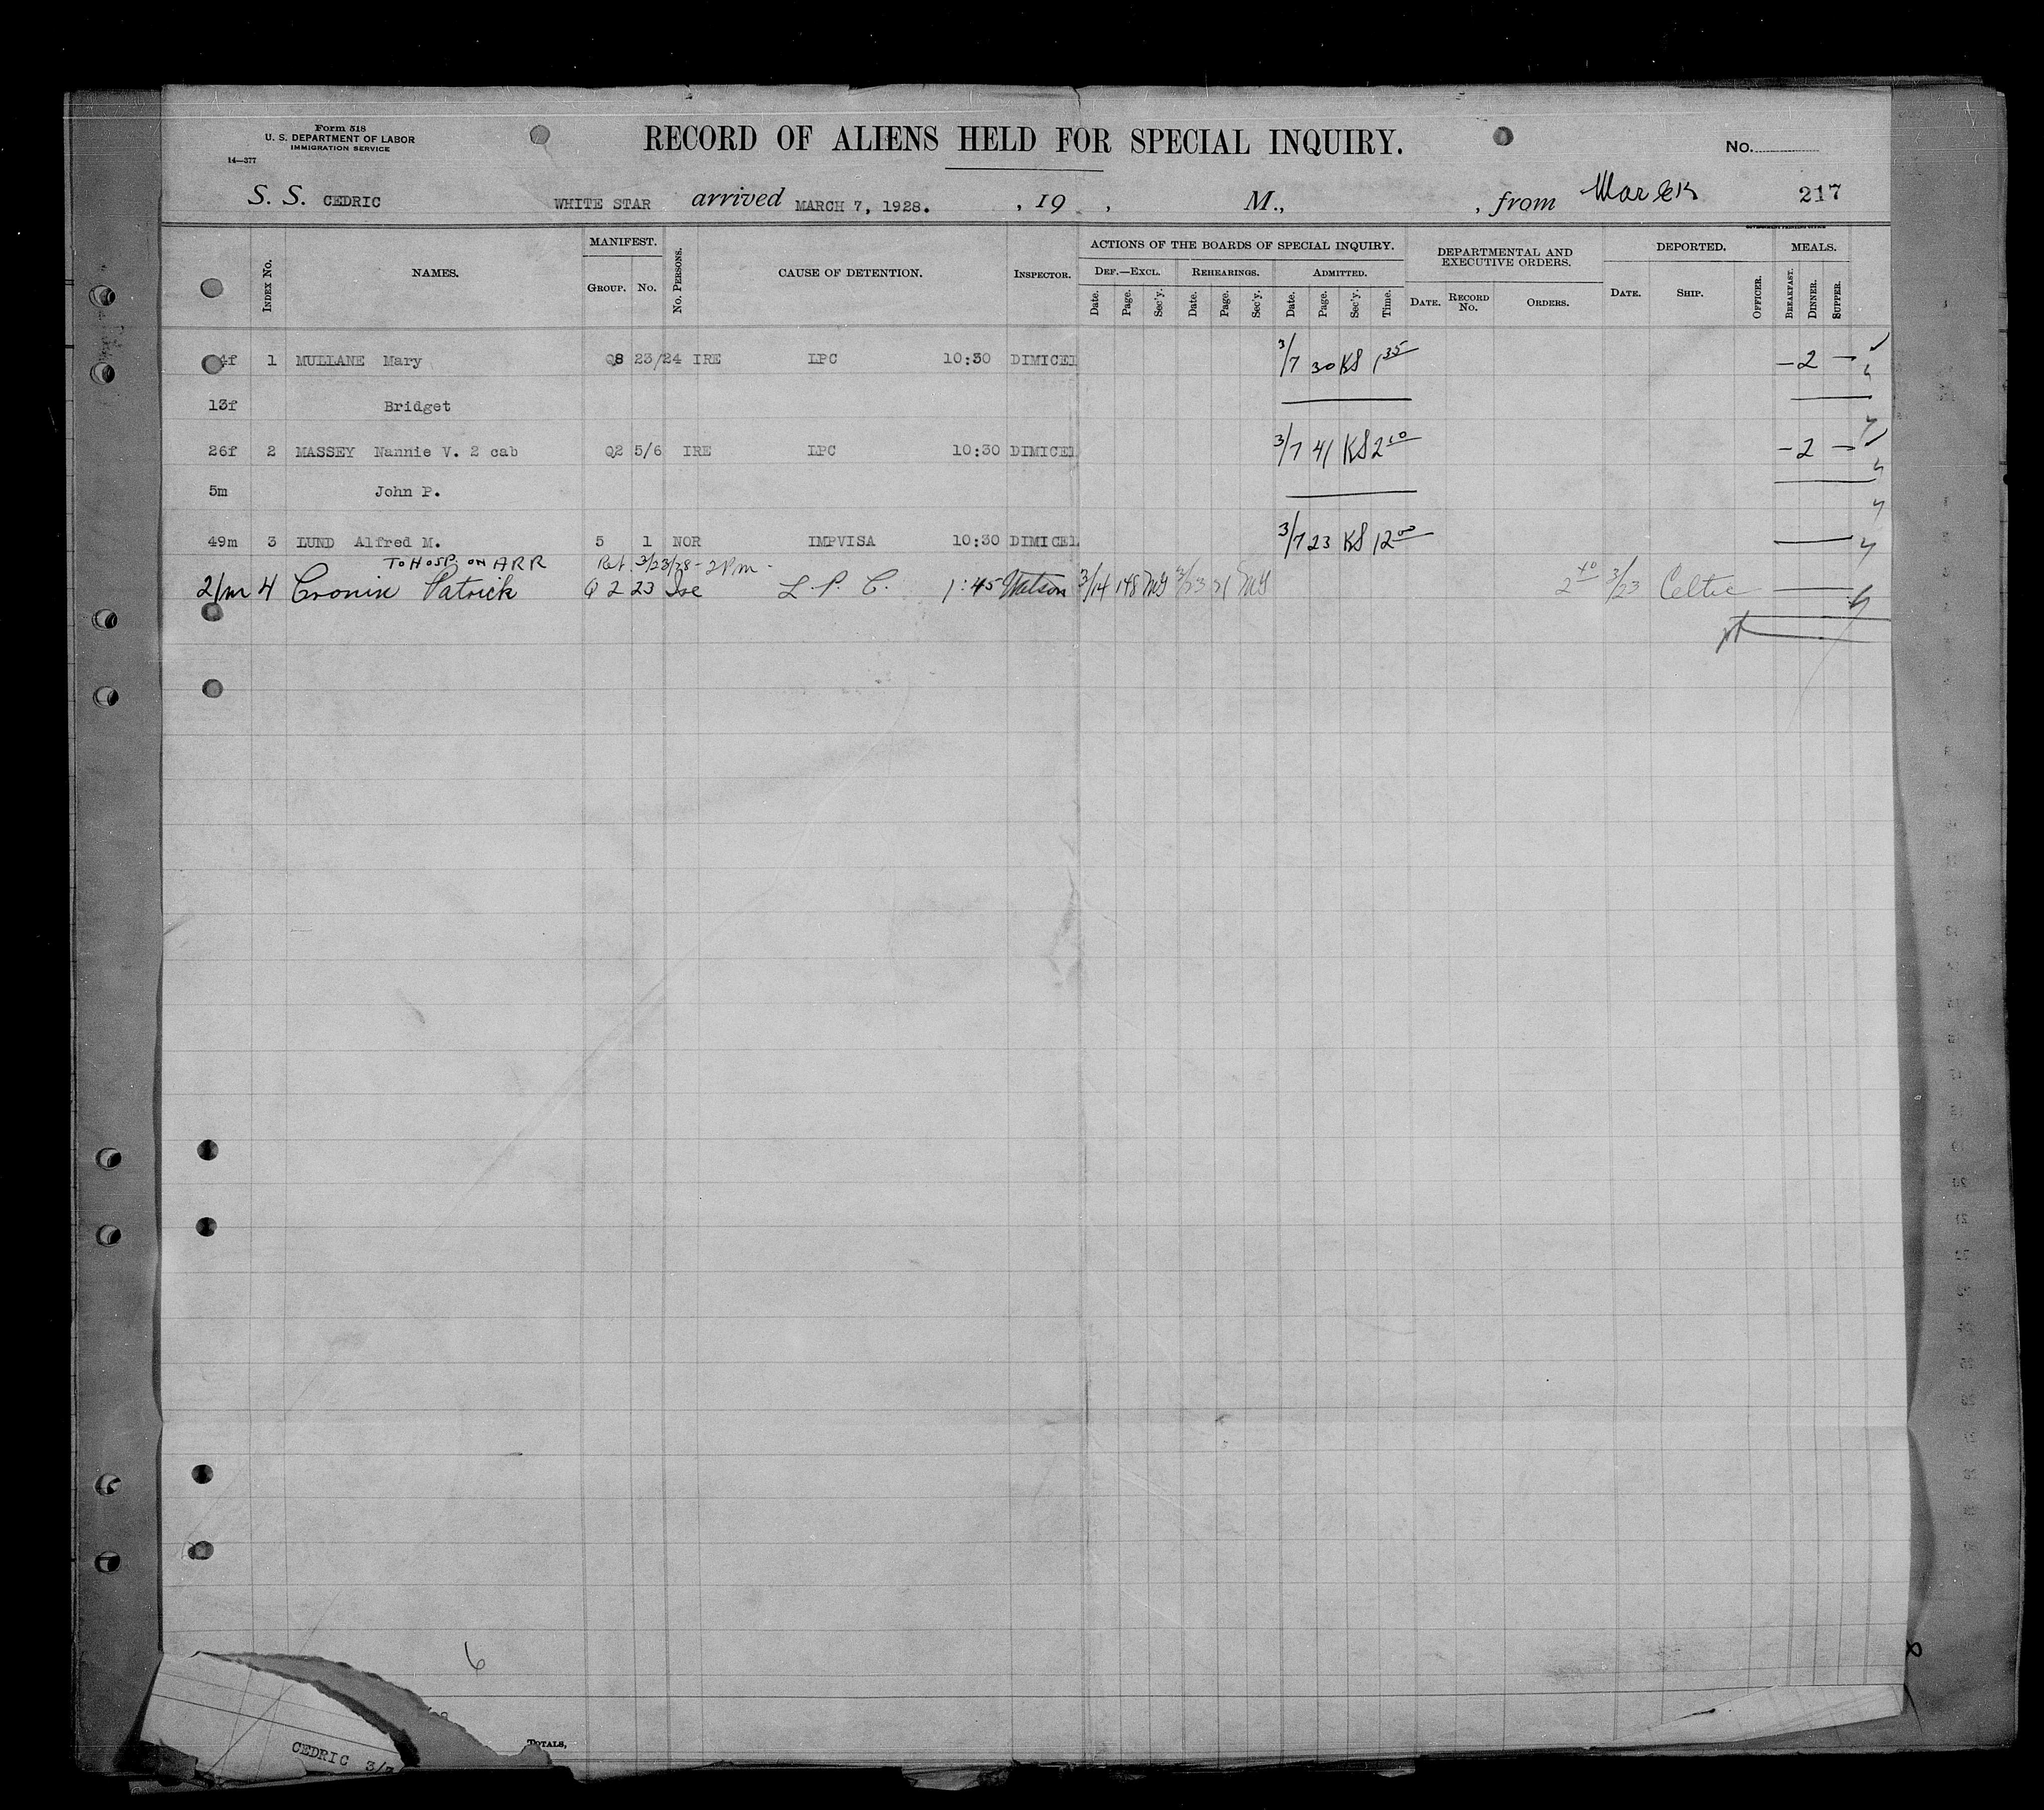 Form 518
U. S. DEPARTMENT OF LABOR
IMMIGRATION SERVICE
14—377
RECORD OF ALIENS HELD FOR SPECIAL INQUIRY.
No.
S. S. CEDRIC WHITE STAR arrived MARCH 7, 1928. , 19 , M., , from 217
INDEX No. NAMES. MANIFEST. GROUP. No. No. PERSONS. CAUSE OF DETENTION. INSPECTOR. ACTIONS OF THE BOARDS OF SPECIAL INQUIRY. DEPARTMENTAL AND EXECUTIVE ORDERS. DEPORTED. MEALS.
DEF.—EXCL. REHEARINGS. ADMITTED.
Date. Page. Sec'y. Date. Page. Sec'y. Date. Page. Sec'y. Time. DATE. RECORD No. ORDERS. DATE. SHIP. OFFICER. BREAKFAST. DINNER. SUPPER.
4f 1 MULLANE Mary Q8 23/24 IRE LPC 10:30 DIMICEL 3/7 30 KS 1 35 — 2 —
13f Bridget
26f 2 MASSEY Nannie V. 2 cab Q2 5/6 IRE LPC 10:30 DIMICEL 3/7 41 KS 2 10 — 2 —
5m John P.
49m 3 LUND Alfred M. 5 1 NOR IMPVISA 10:30 DIMICEL 3/7 23 KS 12 00
TO HOSP ON ARR Ret. 3/23/28 - 2 Pm -
21m 4 Cronin Patrick Q 2 23 Ire L. P. C. 1:45 Watson 3/14 148 3/23 2 40 3/23 Celtic
6
TOTALS,
CEDRIC 3/7